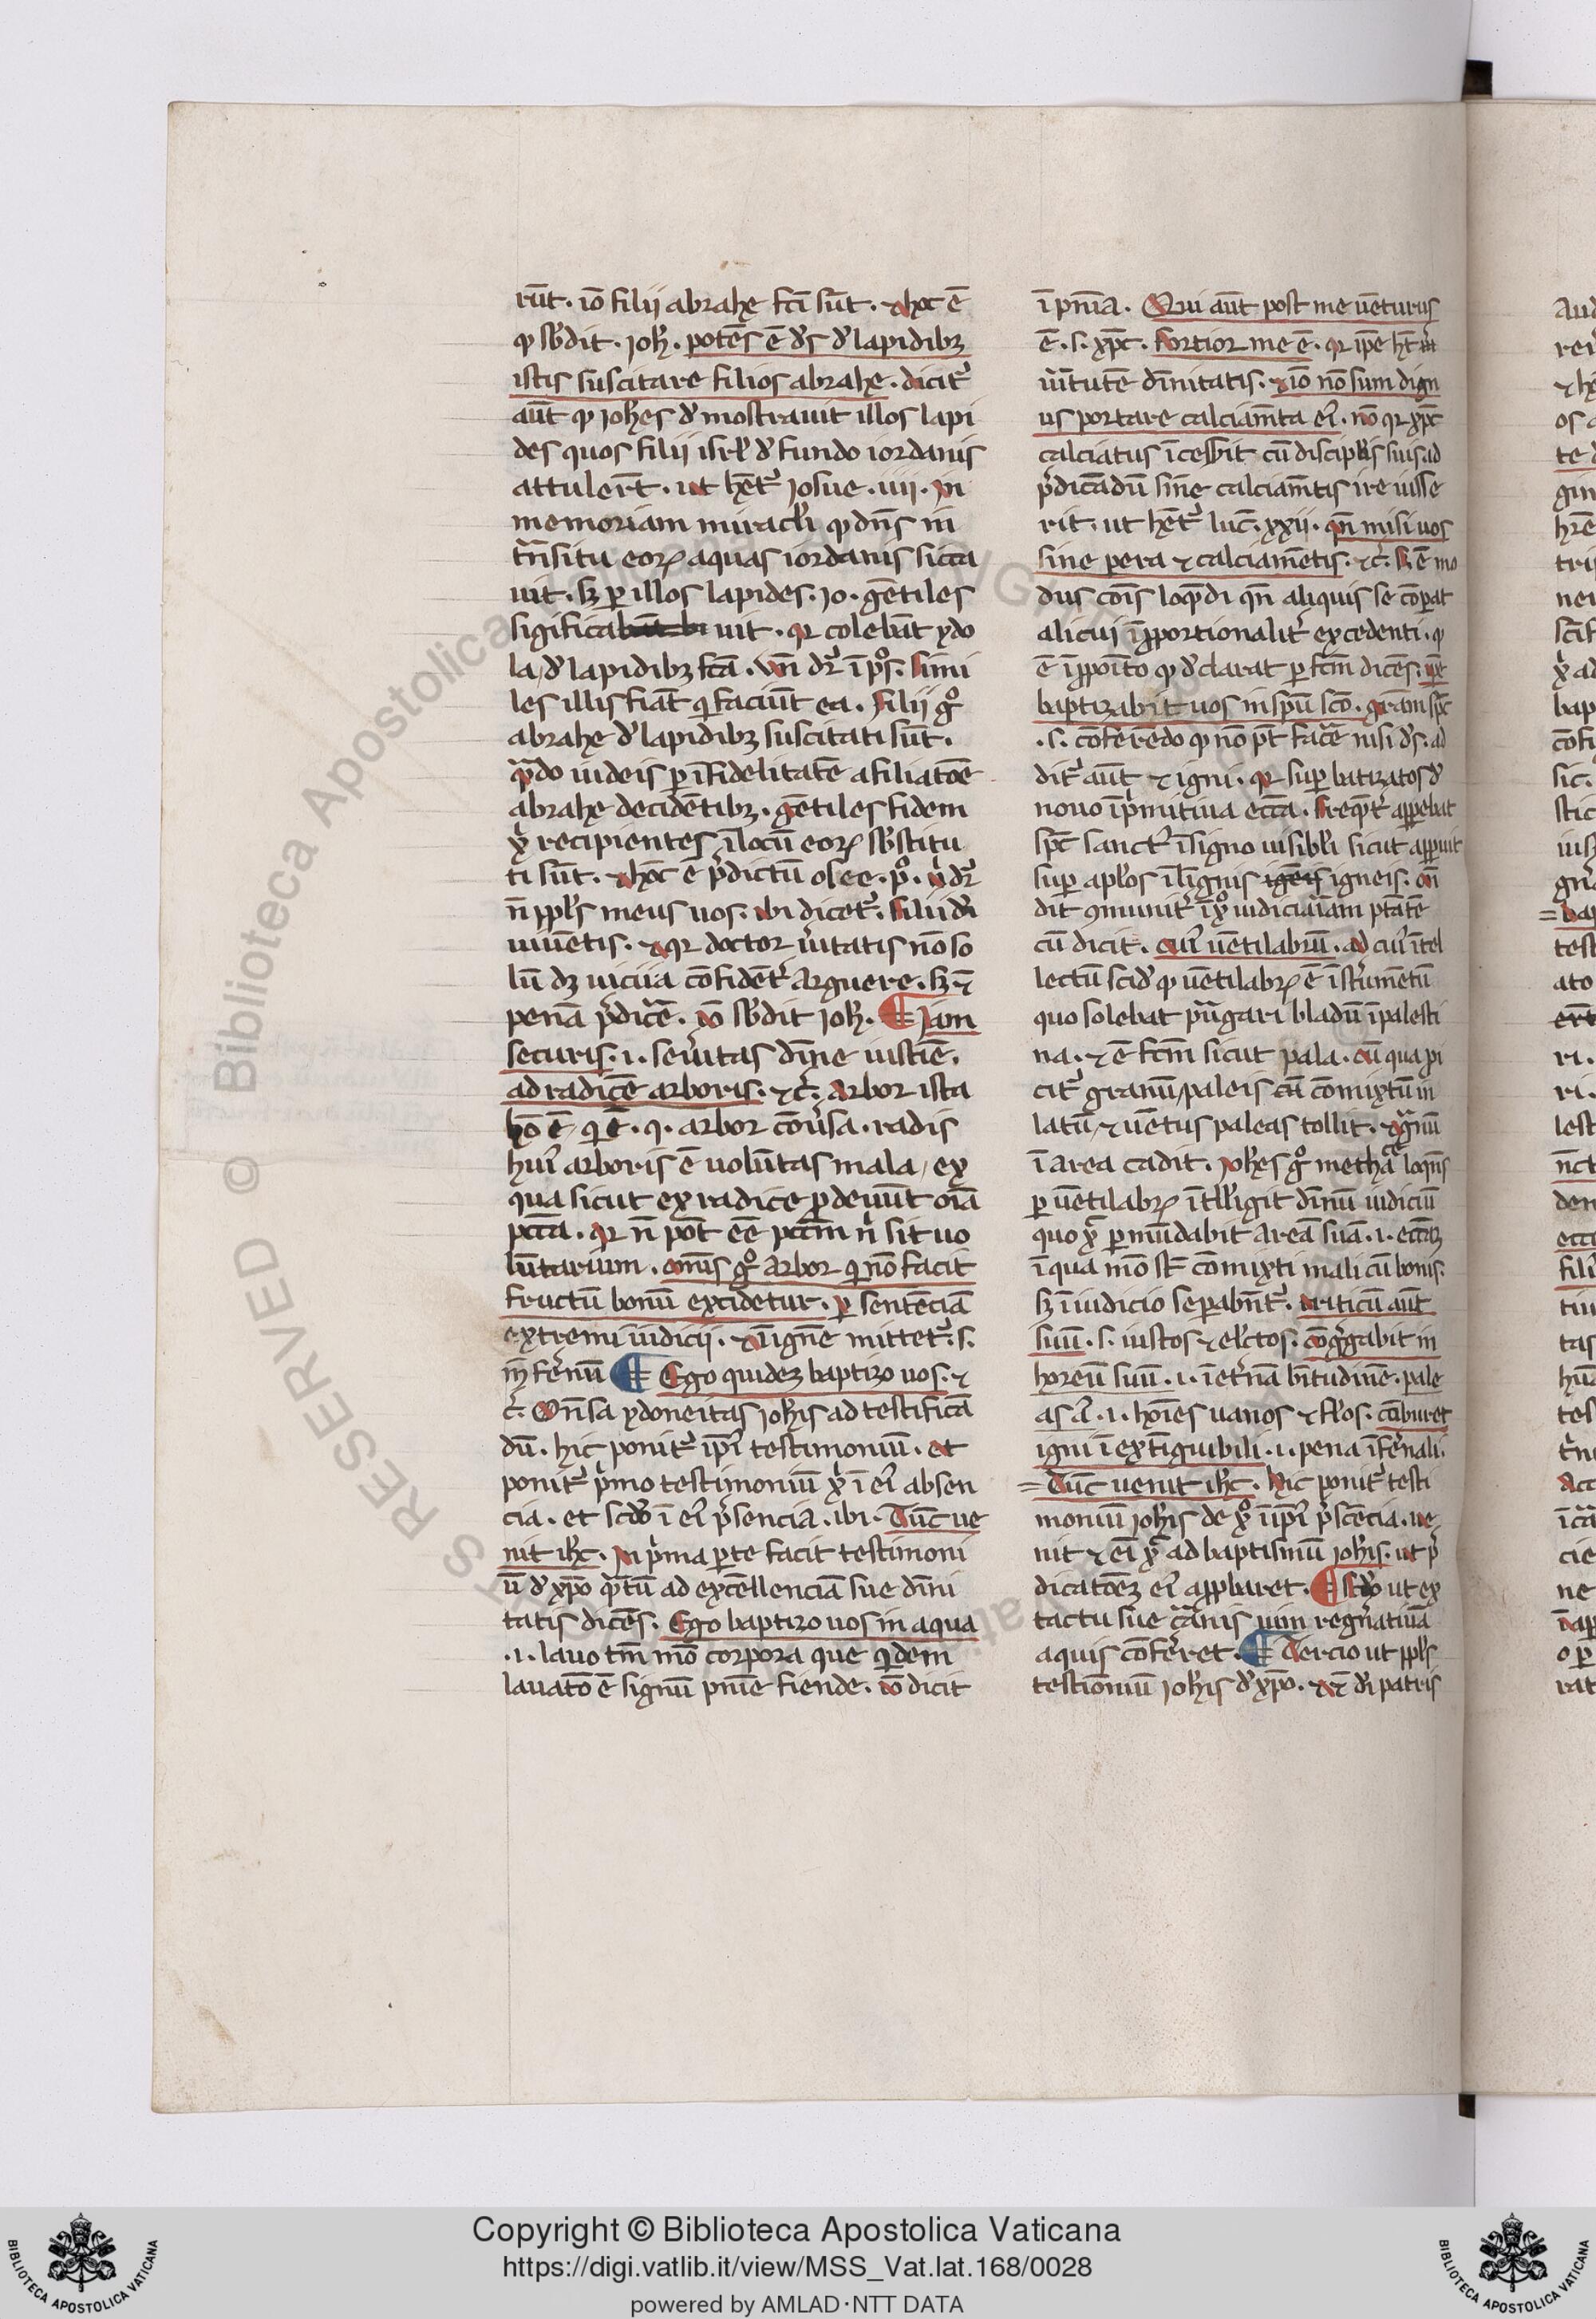 rūt. iō filii abrahę fc̄i sūt. ⁊ hoc ē
ꝙ sb̓dit. Joħ. potēs ē d̓s d̓ lapidibꝫ
istis suscitare filios abrahę. dicit᷑
aūt ꝙ Joħes d̓mostrauit illos lapi
des quos filii isrł d̓ fundo iordanis
attuler̄t. ut hēt᷑ Josue. iiii. in
memoriam miraclī ꝙ dn̄s in
tn̄situ eoꝝ aquas iordanis sicca
uit. sꝫ ꝑ illos lapides. Jo. gētiles
sigifica uit. qr colebāt ydo
la, d̓ lapidibꝫ fc̄a. vn̄ dr̄ ī ps̊. simi
les illis fiāt qi faciūt ea. filii gͦ
abrahę d̓ lapidibꝫ suscitati sūt.
qᷓdo iudeis ꝑ īfidelitatē a filiatōe
abrahę decidētibꝫ. gētiles fidem
xi recipientes ī locū eoꝝ sb̓stitu
ti sūt. ⁊ hoc ē p̓dictū osee. pͦ. u̓ dr̄
n̄ ppl̓s meus uos. ibi dicet᷑. filii di
uiuētis. ⁊ qr doctor u̓itatis nō so
lū dꝫ uicia cōfidēt᷑ arguere. sꝫ ⁊
penā p̓dicāe. iō sb̓dit Joħ. ¶ Jam
securis. .i. seu̓itas diīne iusticie.
ad radicē arboris. ⁊c̄. arbor ista
hō ē, qi ē. q. arbor cōu̓sa. radis
huī arboris ē uolūtas mala, ex
qua sicut ex radice ꝓdeūt oīa
pcc̄a. qr n̄ pōt eē pccm̄ ni sit uo
lūtarium. omīs gͦ arbor qi nō facit
fructū bonū excidetur. ꝑ sentēciā
extremi iudicii. ⁊ ī ignē mittet᷑. s.
inf̓nū ¶ Ego quideꝫ baptizo uos. ⁊
c̄. On̄sa ydoneitas Joħis ad testificā
dū. hic ponit᷑ ip̄i testimoniū. et
ponit᷑ p̓mo testimoniū xi ī eī absen
cia. et scdō ī eī p̓sencia. ibi. Tūc ue
nit iħc. In p̓ma ꝑte facit testimoni
ū d̓ xp̄o qᷓtū ad excellenciā sue diīni
tatis dicēs. Ego baptizo uos in aqua
.i. lauo tm̄ mō corpora que qidem
lauatō ē signū pnīe fiende. iō dicit
ī pnīa. Qui aūt post me uēturus
ē. s. xp̄c. fortior me ē. qr ip̄e hēt
uīrtutē diīnitatis. ⁊ iō nō sum dign
us portare calciam̄ta eī. nō qr xp̄c
calciatus īcessit cū discipl̓is suis. ad
p̓dicādū sine calciam̄tis ire iusse
rit. ut hēt᷑ luc̄. xxii. qn̄ misi uos
sine pera ⁊ calciam̄etis. ⁊c̄. sꝫ ē mo
dus cōis loqn̄di qn̄ aliquis se cōꝑat
alicui īꝓportionalit᷑ excedenti. ꝙ
ē īꝓpoīto ꝙ d̓clarat ꝑ fcm̄ dicēs. ip̄e
baptizabit uos in spū scō. grām sp̄c
.s. cōferēdo ꝙ nō pōt facē nisi d̓s. ad
dit᷑ aūt ⁊ igni. qr suꝑ batizatos d̓
nouo ī p̓mitiua ecc̄a. freqn̄t᷑ appebat
sp̄c sanct᷑ ī signo uisibl̓i sicut appuit
suꝑ apl̓os ī līguis igneis. on̄
dit ꝯmunit᷑ ī xͦ iudiciariam ptātē
cū dicit. cuī uētilabrū. ad cuī ītel
lectū scid̓ ꝙ uētilabꝝ ē īstrumētū
quo solebat purgari bladū ī palesti
na. ⁊ ē fcm̄ sicut pala. cū qua pi
cit᷑ granū, paleis cōmixtū in
latū, ⁊ uētus paleas tollit. ⁊ gᷓnū
ī area cadit. Joħes gͦ methaᷓ loqn̄s
ꝑ uētilabꝝ ītl̓ligit diīnū iudiciū
quo xᷓ ꝑmūdabit areā suā. .i. eccaꝫ
ī qua mō st̄ cōmixti mali cū bonis.
sꝫ ī iudicio seꝑabn̄t᷑. triticū aūt
suū. s. iustos ⁊ el̓ctos. cōgᷓgabit in
horeū suū. .i. īet᷑nā bītudinē. pale
as .i. hoīes uanos ⁊ fl̓os. cōburet
igni ī extīguibili. .i. pena īf̓nali.
= Tūc uenit iħc. hic ponit᷑ testi
moniū Joħis de xͦ ī ip̄i p̓sēcia. ue
nit ⁊ eī xᷓ ad baptismū Joħis. ut p̓
dicatōeꝫ eī apꝓbaret. ¶ Scdō ut ex
tactu sue cᷓnis uim regn̓atiuā
aquis cōf̓ret. ¶ Tercio ut ppl̓s
testioniū Joħis d̓ xp̄o. ⁊ dī patris
Copyright © Biblioteca Apostolica Vaticana
https://digi.vatlib.it/view/MSS_Vat.lat.168/0028
powered by AMLAD·NTT DATA
BIBLIOTECA APOSTOLICA VATICANA
BIBLIOTECA APOSTOLICA VATICANA